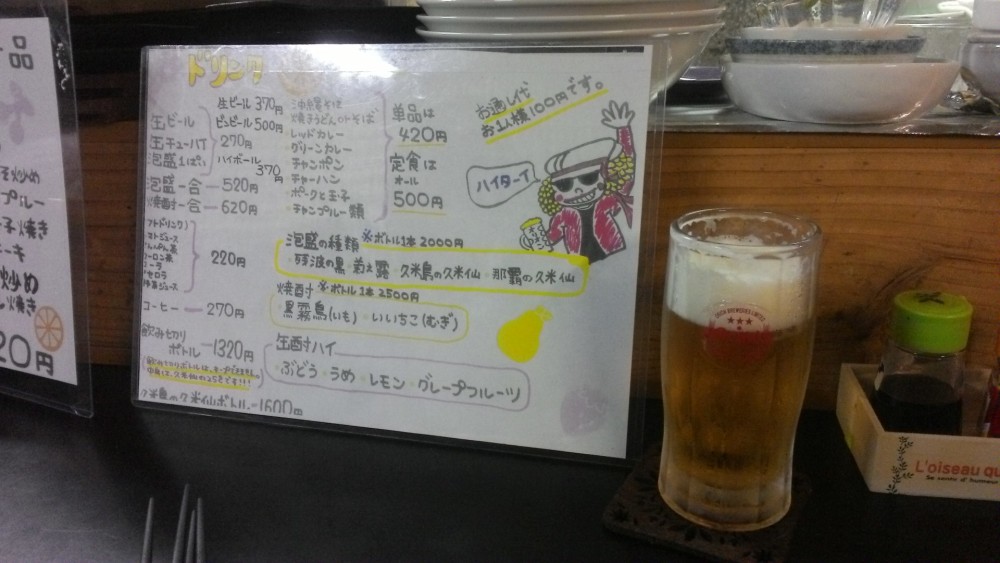 一品
そ炒め
プルー
子焼き
ーキ
炒め
し焼き
20円
ドリンク
生ビール 370円
缶ビール
ビンビール 500円
缶チューハイ
270円
泡盛1ぱい
ハイボール
370円
泡盛一合 520円
焼酎一合 620円
220円
コーヒー 270円
飲みきり
ボトル 1320円
久米島の久米仙ボトル 1600円
沖縄そば
レッドカレー
グリーンカレー
チャンポン
チャーハン
ポークと玉子
チャンプルー類
単品は
420円
定食は
オール
500円
お通し代
お1人様100円です。
ハイターイ
泡盛の種類 ※ボトル1本2000円
・残波の黒・菊之露・久米島の久米仙・那覇の久米仙
焼酎 ※ボトル1本2500円
・黒霧島(いも)・いいちこ(むぎ)
生酎ハイ
・ぶどう・うめ・レモン・グレープフルーツ
L'oiseau qu